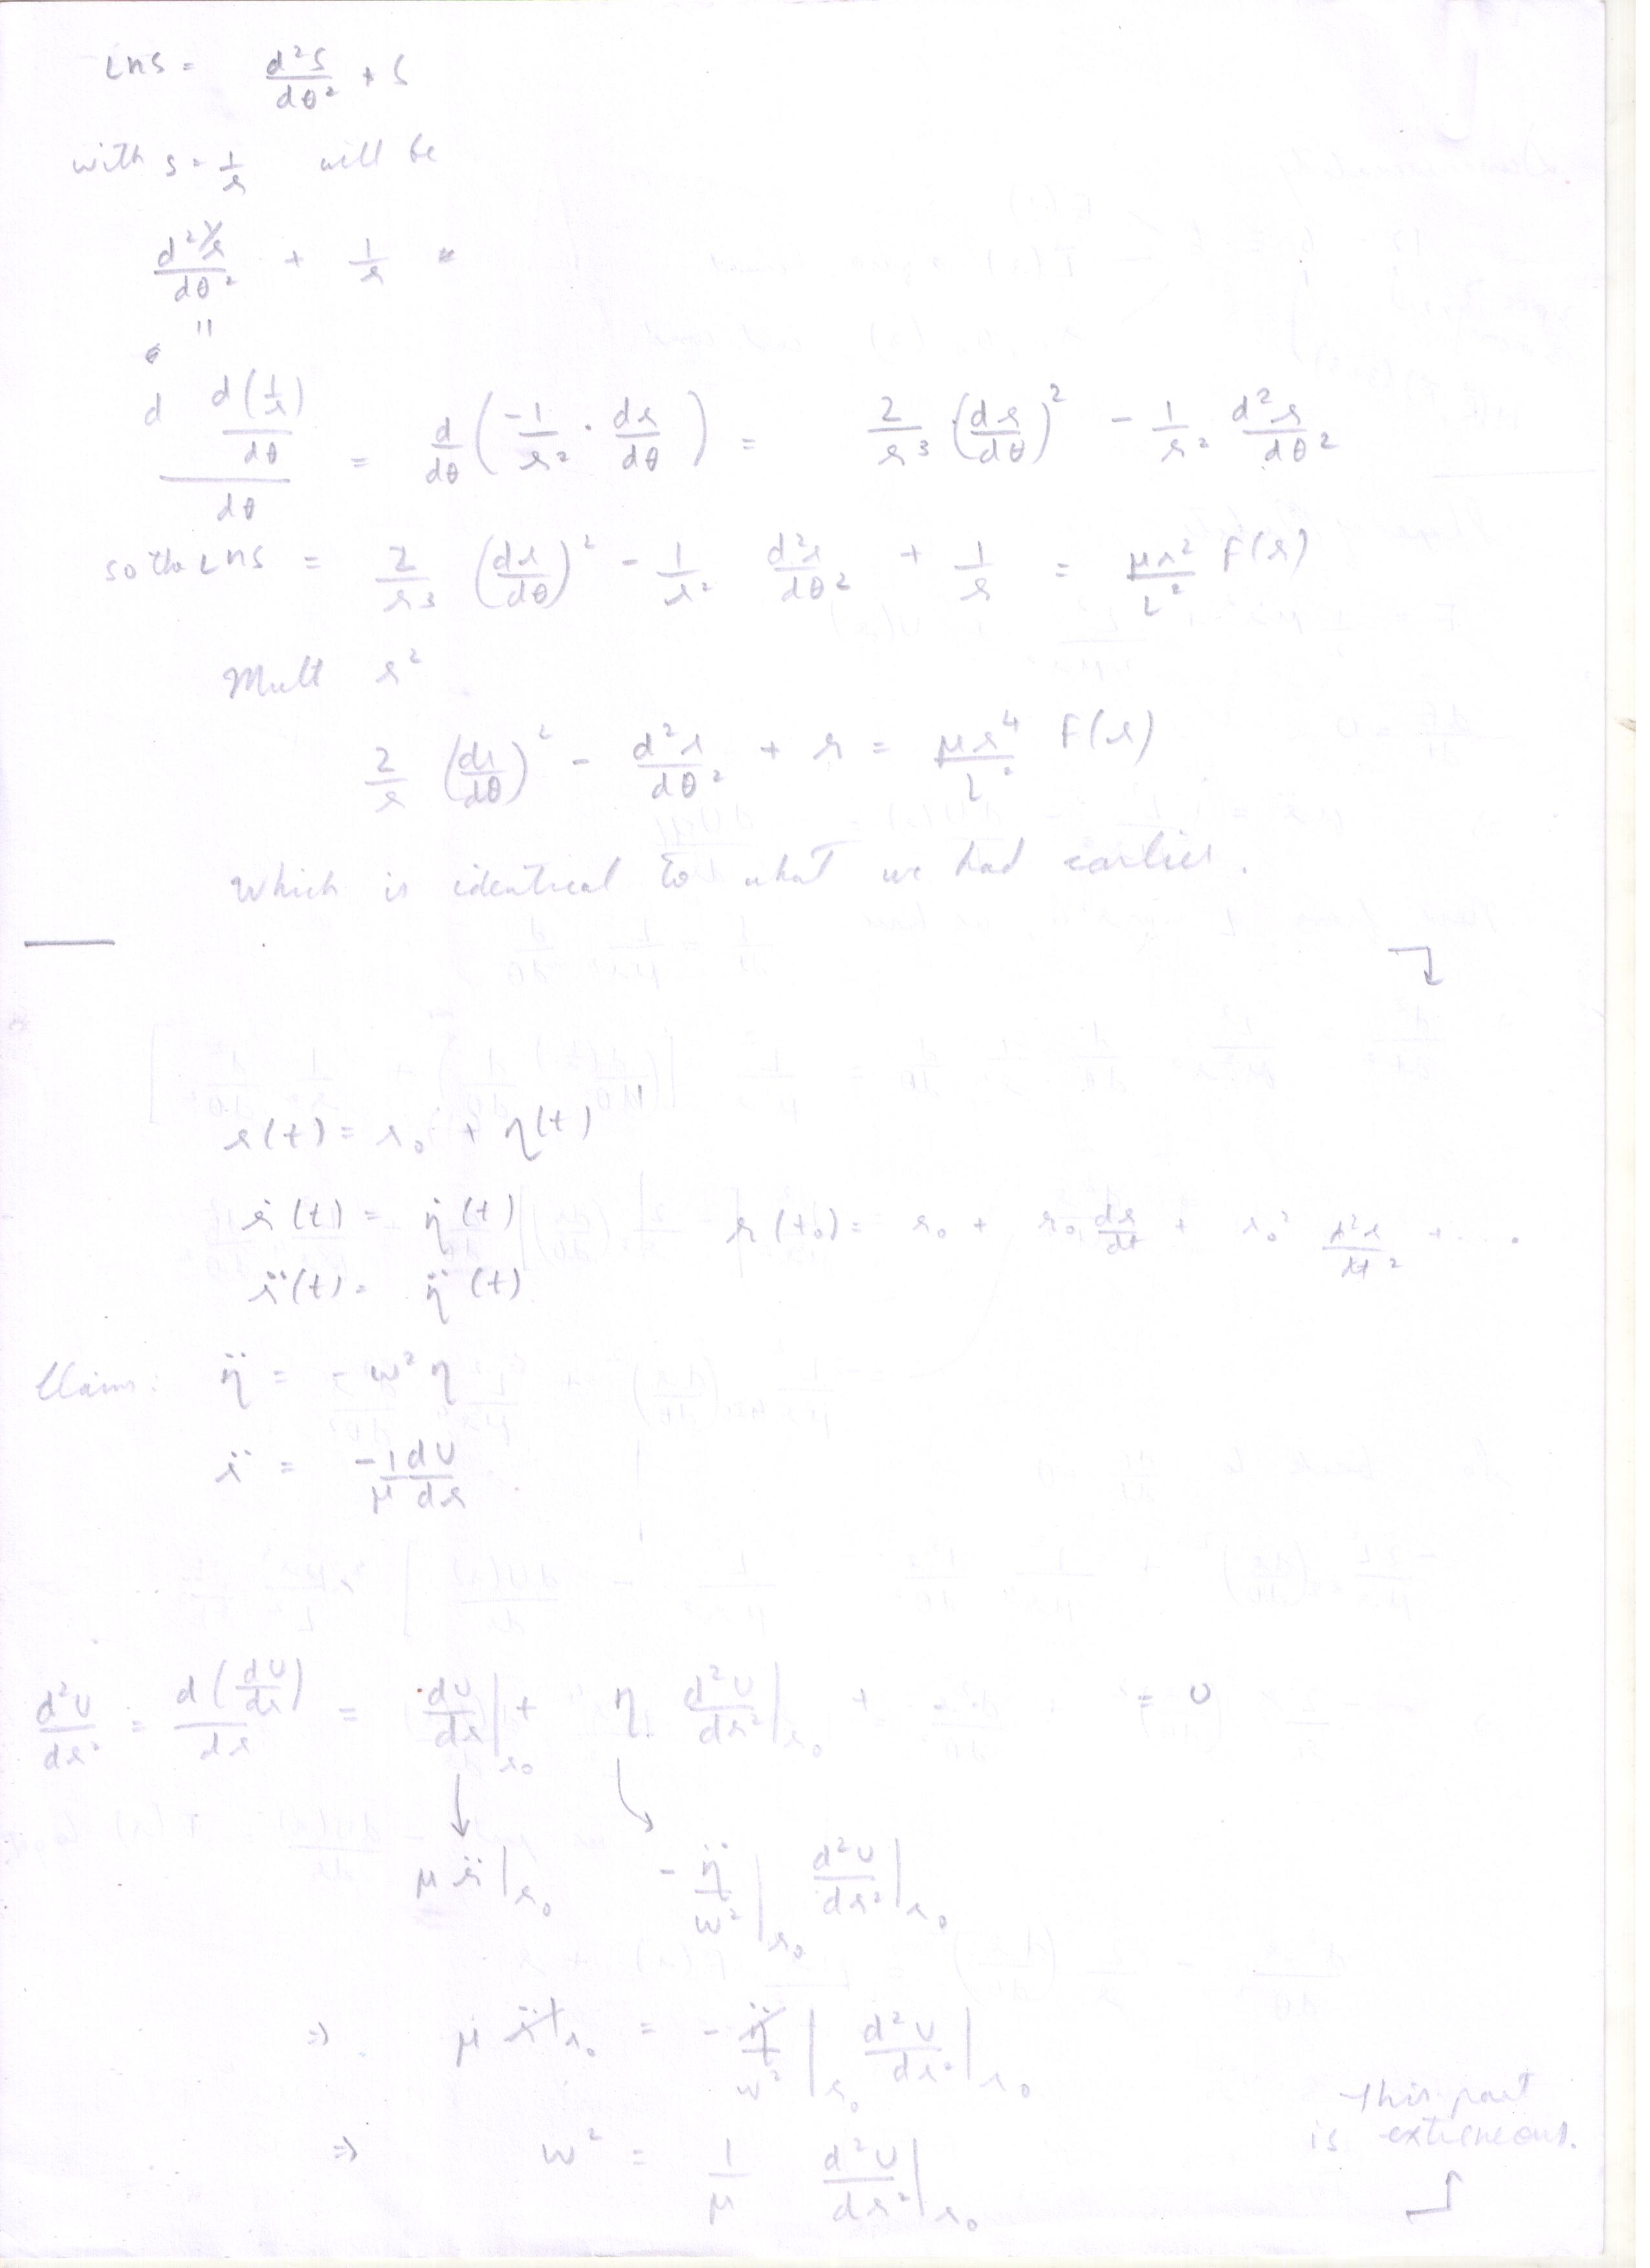 LHS = d²s/dθ² + s
with s = 1/r will be
d²1/r/dθ² + 1/r
"
d d(1/r)/dθ / dθ = d/dθ (-1/r² · dr/dθ) = 2/r³ (dr/dθ)² - 1/r² d²r/dθ²
so the LHS = 2/r³ (dr/dθ)² - 1/r² d²r/dθ² + 1/r = μr²/L² F(r)
Mult r²
2/r (dr/dθ)² - d²r/dθ² + r = μr⁴/L² F(r)
Which is identical to what we had earlier.
r(t) = r₀ + η(t)
ṙ(t) = η̇(t) r(t₀) = r₀ + r₀ dr/dt + r₀² d²r/dt² + ....
r̈(t) = η̈(t)
Claim: η̈ = -ω²η
r̈ = -1/μ dU/dr
d²U/dr² = d(dU/dr)/dr = dU/dr|r₀ + η. d²U/dr²|r₀ + = 0
↓ ↘
μr̈|r₀ -η̈/ω²|r₀ d²U/dr²|r₀
⇒ μr̈|r₀ = -η̈/ω²|r₀ d²U/dr²|r₀
This part
is extreneous.
⇒ ω² = 1/μ d²U/dr²|r₀